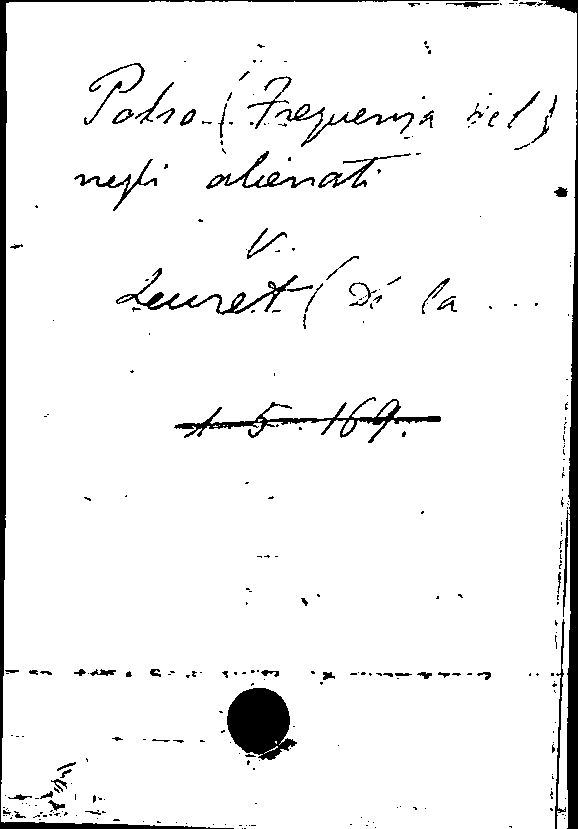 Polso (Frequenza del)
negli alienati
V.
Leuret (De la ...
1. 5. 169.